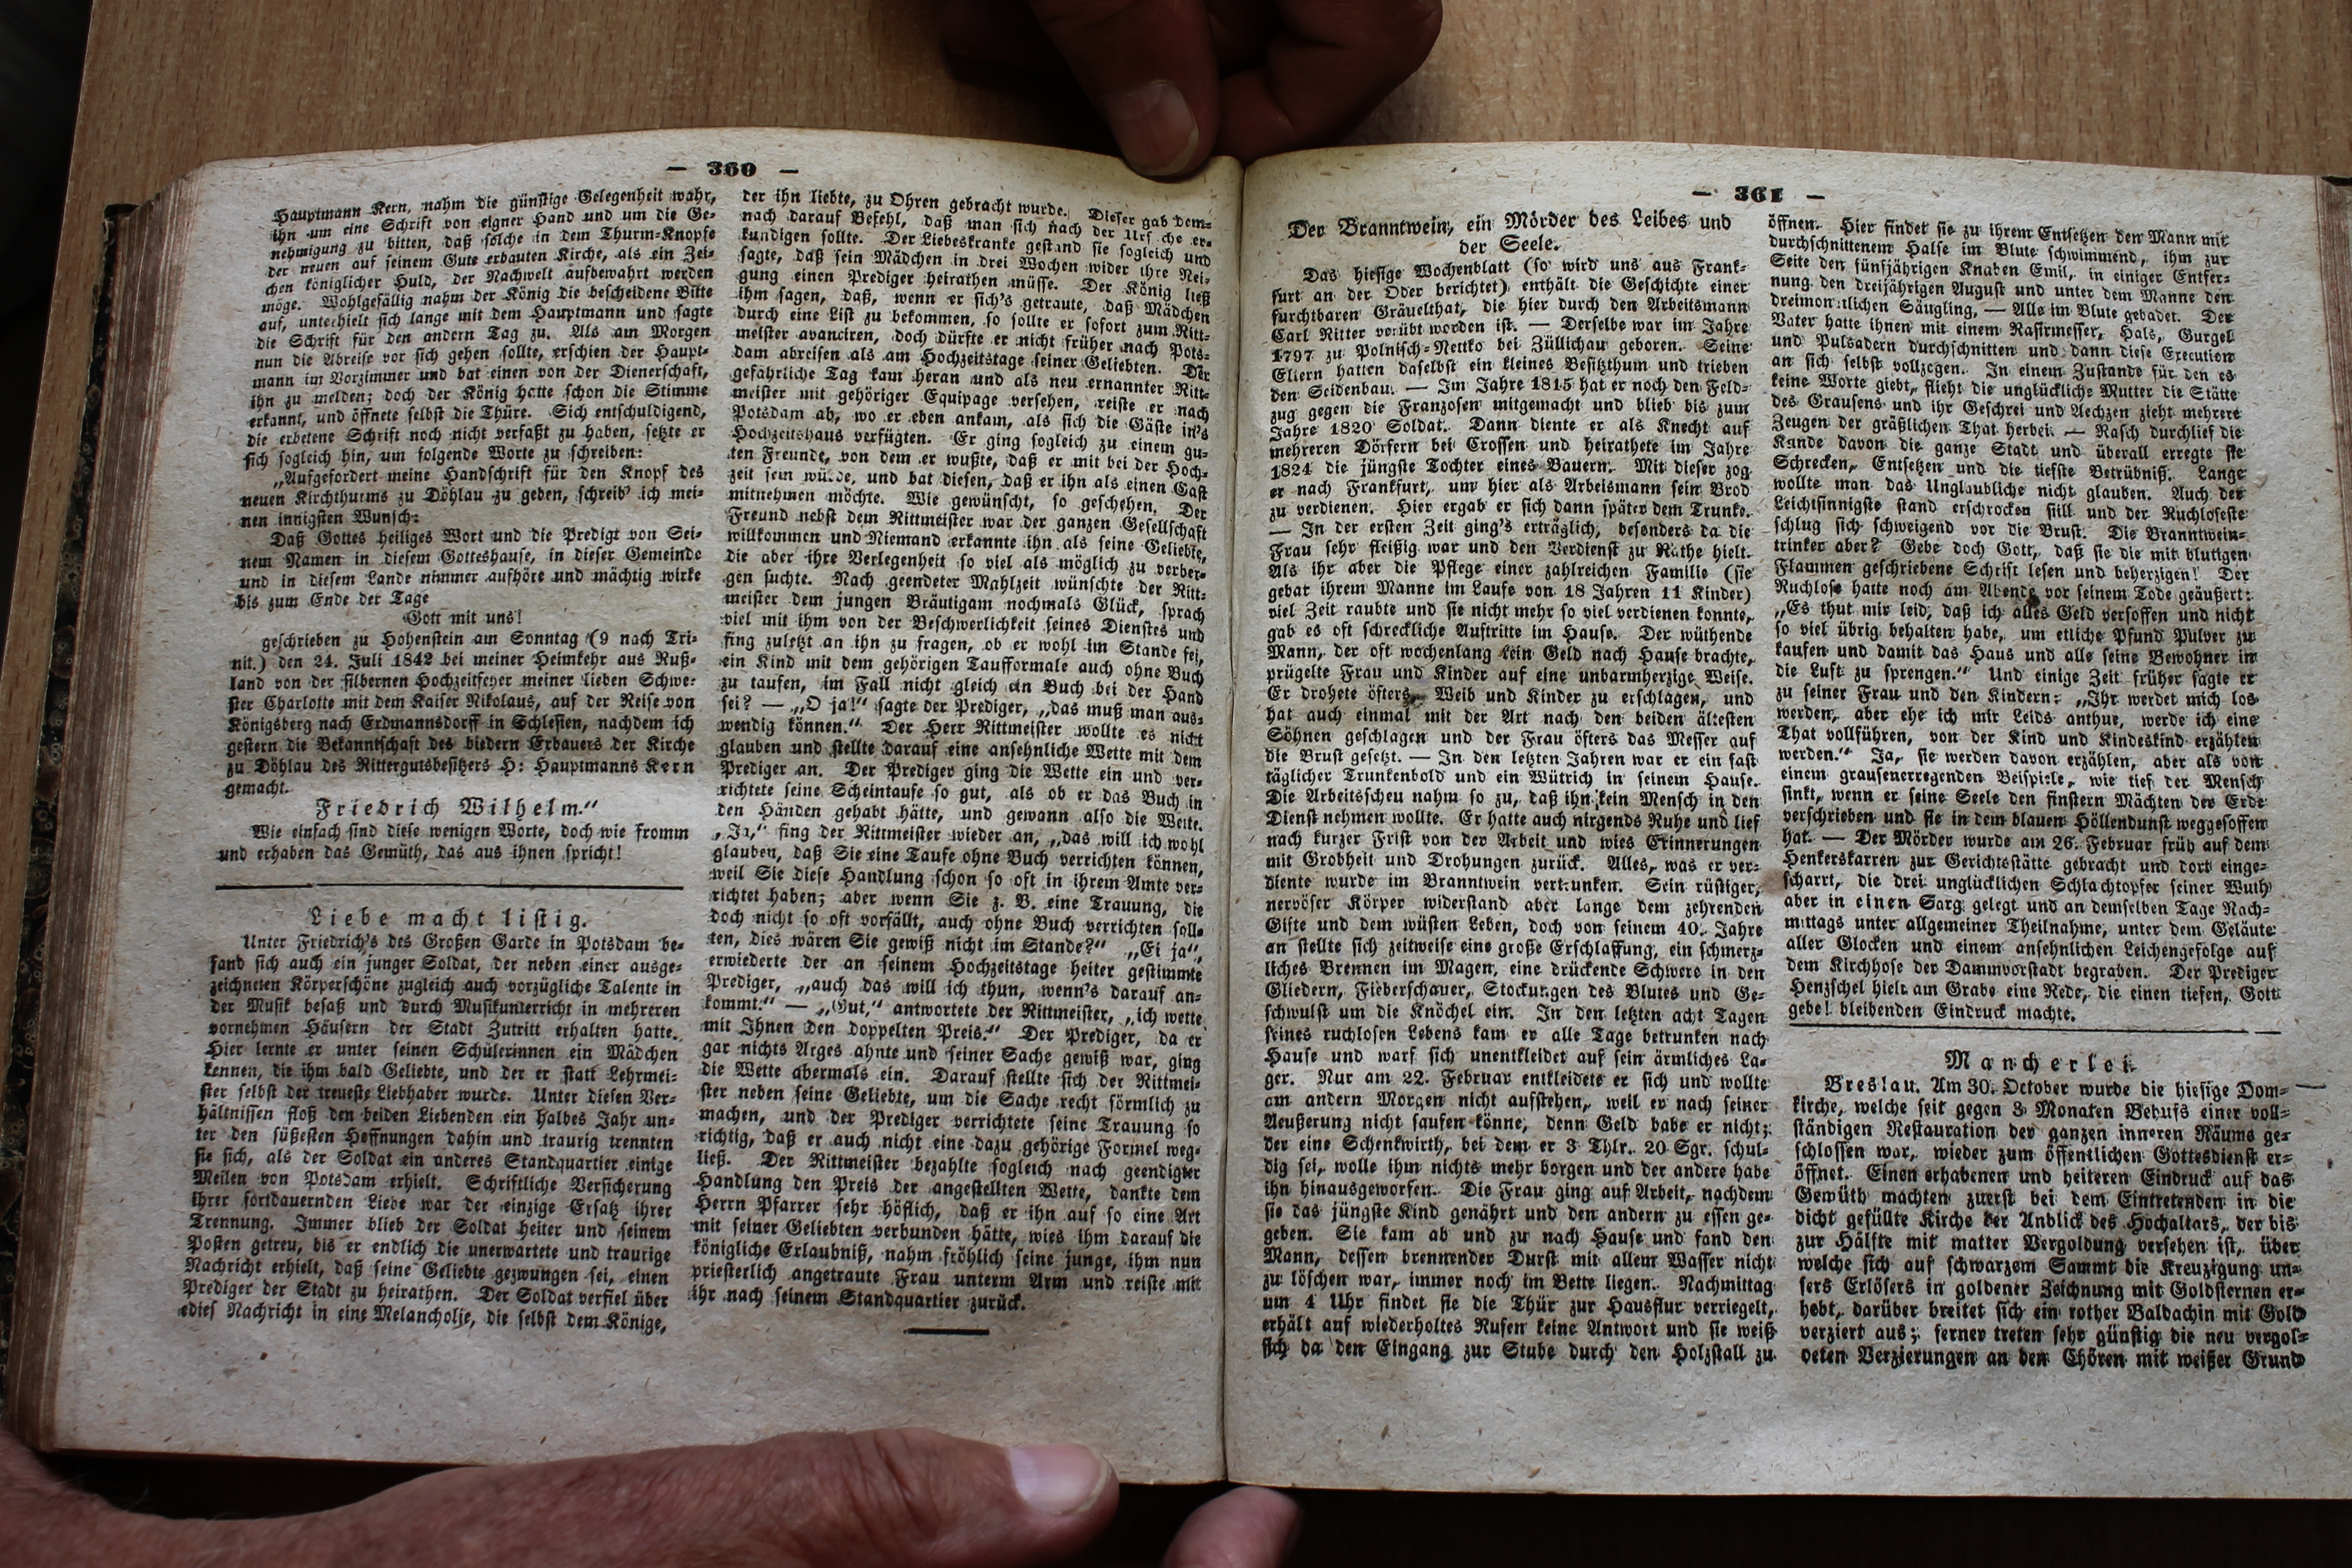 — 360 —
Hauptmann Kern, nahm die günstige Gelegenheit wahr,
ihn um eine Schrift von eigner Hand und um die Ge-
nehmigung zu bitten, daß solche in dem Thurm-Knopfe
der neuen auf seinem Gute erbauten Kirche, als ein Zei-
chen königlicher Huld, der Nachwelt aufbewahrt werden
möge. Wohlgefällig nahm der König die bescheidene Bitte
auf, unterhielt sich lange mit dem Hauptmann und sagte
die Schrift für den andern Tag zu. Als am Morgen
nun die Abreise vor sich gehen sollte, erschien der Haupt-
mann im Vorzimmer und bat einen von der Dienerschaft,
ihn zu melden; doch der König hatte schon die Stimme
erkannt, und öffnete selbst die Thüre. Sich entschuldigend,
die erbetene Schrift noch nicht verfaßt zu haben, setzte er
sich sogleich hin, um folgende Worte zu schreiben:
„Aufgefordert meine Handschrift für den Knopf des
neuen Kirchthurms zu Döhlau zu geben, schreib' ich mei-
nen innigsten Wunsch:
Daß Gottes heiliges Wort und die Predigt von Sei-
nem Namen in diesem Gotteshause, in dieser Gemeinde
und in diesem Lande nimmer aufhöre und mächtig wirke
bis zum Ende der Tage
Gott mit uns!
geschrieben zu Hohenstein am Sonntag (9 nach Tri-
nit.) den 24. Juli 1842 bei meiner Heimkehr aus Ruß-
land von der silbernen Hochzeitfeyer meiner lieben Schwe-
ster Charlotte mit dem Kaiser Nikolaus, auf der Reise von
Königsberg nach Erdmannsdorff in Schlesien, nachdem ich
gestern die Bekanntschaft des biedern Erbauers der Kirche
zu Döhlau des Rittergutsbesitzers H: Hauptmanns Kern
gemacht.
Friedrich Wilhelm.“
Wie einfach sind diese wenigen Worte, doch wie fromm
und erhaben das Gemüth, das aus ihnen spricht!
Liebe macht listig.
Unter Friedrich's des Großen Garde in Potsdam be-
fand sich auch ein junger Soldat, der neben einer ausge-
zeichneten Körperschöne zugleich auch vorzügliche Talente in
der Musik besaß und durch Musikunterricht in mehreren
vornehmen Häusern der Stadt Zutritt erhalten hatte.
Hier lernte er unter seinen Schülerinnen ein Mädchen
kennen, die ihm bald Geliebte, und der er statt Lehrmei-
ster selbst der treueste Liebhaber wurde. Unter diesen Ver-
hältnissen floß den beiden Liebenden ein halbes Jahr un-
ter den süßesten Hoffnungen dahin und traurig trennten
sie sich, als der Soldat ein anderes Standquartier einige
Meilen von Potsdam erhielt. Schriftliche Versicherung
ihrer fortdauernden Liebe war der einzige Ersatz ihrer
Trennung. Immer blieb der Soldat heiter und seinem
Posten getreu, bis er endlich die unerwartete und traurige
Nachricht erhielt, daß seine Geliebte gezwungen sei, einen
Prediger der Stadt zu heirathen. Der Soldat verfiel über
dies Nachricht in eine Melancholie, die selbst dem Könige,
der ihn liebte, zu Ohren gebracht wurde. Dieser gab dem-
nach darauf Befehl, daß man sich nach der Ursache er-
kundigen sollte. Der Liebeskranke gestand sie sogleich und
sagte, daß sein Mädchen in drei Wochen wider ihre Nei-
gung einen Prediger heirathen müsse. Der König ließ
ihm sagen, daß, wenn er sich's getraute, daß Mädchen
durch eine List zu bekommen, so sollte er sofort zum Ritt-
meister avanciren, doch dürfte er nicht früher nach Pots-
dam abreisen als am Hochzeitstage seiner Geliebten. Der
gefährliche Tag kam heran und als neu ernannter Ritt-
meister mit gehöriger Equipage versehen, reiste er nach
Potsdam ab, wo er eben ankam, als sich die Gäste in's
Hochzeitshaus verfügten. Er ging sogleich zu einem gu-
ten Freunde, von dem er wußte, daß er mit bei der Hoch-
zeit sein würde, und bat diesen, daß er ihn als einen Gast
mitnehmen möchte. Wie gewünscht, so geschehen. Der
Freund nebst dem Rittmeister war der ganzen Gesellschaft
willkommen und Niemand erkannte ihn als seine Geliebte,
die aber ihre Verlegenheit so viel als möglich zu verber-
gen suchte. Nach geendeter Mahlzeit wünschte der Ritt-
meister dem jungen Bräutigam nochmals Glück, sprach
viel mit ihm von der Beschwerlichkeit seines Dienstes und
fing zuletzt an ihn zu fragen, ob er wohl im Stande sei,
ein Kind mit dem gehörigen Taufformale auch ohne Buch
zu taufen, im Fall nicht gleich ein Buch bei der Hand
sei? — „O ja!“ sagte der Prediger, „das muß man aus-
wendig können.“ Der Herr Rittmeister wollte es nicht
glauben und stellte darauf eine ansehnliche Wette mit dem
Prediger an. Der Prediger ging die Wette ein und ver-
richtete seine Scheintaufe so gut, als ob er das Buch in
den Händen gehabt hätte, und gewann also die Wette.
„Ja,“ fing der Rittmeister wieder an, „das will ich wohl
glauben, daß Sie eine Taufe ohne Buch verrichten können,
weil Sie diese Handlung schon so oft in ihrem Amte ver-
richtet haben; aber wenn Sie z. B. eine Trauung, die
doch nicht so oft vorfällt, auch ohne Buch verrichten soll-
ten, dies wären Sie gewiß nicht im Stande?“ „Ei ja“,
erwiederte der an seinem Hochzeitstage heiter gestimmte
Prediger, „auch das will ich thun, wenn's darauf an-
kommt.“ — „Gut,“ antwortete der Rittmeister, „ich wette
mit Ihnen den doppelten Preis.“ Der Prediger, da er
gar nichts Arges ahnte und seiner Sache gewiß war, ging
die Wette abermals ein. Darauf stellte sich der Rittmei-
ster neben seine Geliebte, um die Sache recht förmlich zu
machen, und der Prediger verrichtete seine Trauung so
richtig, daß er auch nicht eine dazu gehörige Formel weg-
ließ. Der Rittmeister bezahlte sogleich nach geendigter
Handlung den Preis der angestellten Wette, dankte dem
Herrn Pfarrer sehr höflich, daß er ihn auf so eine Art
mit seiner Geliebten verbunden hätte, wies ihm darauf die
königliche Erlaubniß, nahm fröhlich seine junge, ihm nun
priesterlich angetraute Frau unterm Arm und reiste mit
ihr nach seinem Standquartier zurück.
— 361 —
Der Branntwein, ein Mörder des Leibes und
der Seele.
Das hiesige Wochenblatt (so wird uns aus Frank-
furt an der Oder berichtet) enthält die Geschichte einer
furchtbaren Gräuelthat, die hier durch den Arbeitsmann
Carl Ritter verübt worden ist. — Derselbe war im Jahre
1797 zu Polnisch-Nettko bei Züllichau geboren. Seine
Eltern hatten daselbst ein kleines Besitzthum und trieben
den Seidenbau. — Im Jahre 1815 hat er noch den Feld-
zug gegen die Franzosen mitgemacht und blieb bis zum
Jahre 1820 Soldat. Dann diente er als Knecht auf
mehreren Dörfern bei Crossen und heirathete im Jahre
1824 die jüngste Tochter eines Bauern. Mit dieser zog
er nach Frankfurt, um hier als Arbeismann sein Brod
zu verdienen. Hier ergab er sich dann später dem Trunke.
— In der ersten Zeit ging's erträglich, besonders da die
Frau sehr fleißig war und den Verdienst zu Rathe hielt.
Als ihr aber die Pflege einer zahlreichen Familie (sie
gebar ihrem Manne im Laufe von 18 Jahren 11 Kinder)
viel Zeit raubte und sie nicht mehr so viel verdienen konnte,
gab es oft schreckliche Auftritte im Hause. Der wüthende
Mann, der oft wochenlang kein Geld nach Hause brachte,
prügelte Frau und Kinder auf eine unbarmherzige Weise.
Er drohete öfters, Weib und Kinder zu erschlagen, und
hat auch einmal mit der Art nach den beiden ältesten
Söhnen geschlagen und der Frau öfters das Messer auf
die Brust gesetzt. — In den letzten Jahren war er ein fast
täglicher Trunkenbold und ein Wütrich in seinem Hause.
Die Arbeitsscheu nahm so zu, daß ihn kein Mensch in den
Dienst nehmen wollte. Er hatte auch nirgends Ruhe und lief
nach kurzer Frist von der Arbeit und wies Erinnerungen
mit Grobheit und Drohungen zurück. Alles, was er ver-
diente wurde im Branntwein vertrunken. Sein rüstiger,
nervöser Körper widerstand aber lange dem zehrenden
Gifte und dem wüsten Leben, doch von seinem 40. Jahre
an stellte sich zeitweise eine große Erschlaffung, ein schmerz-
liches Brennen im Magen, eine drückende Schwere in den
Gliedern, Fieberschauer, Stockungen des Blutes und Ge-
schwulst um die Knöchel ein. In den letzten acht Tagen
seines ruchlosen Lebens kam er alle Tage betrunken nach
Hause und warf sich unentkleidet auf sein ärmliches La-
ger. Nur am 22. Februar entkleidete er sich und wollte
am andern Morgen nicht aufstehen, weil er nach seiner
Aeußerung nicht saufen könne, denn Geld habe er nicht;
der eine Schenkwirth, bei dem er 3 Thlr. 20 Sgr. schul-
dig sei, wolle ihm nichts mehr borgen und der andere habe
ihn hinausgeworfen. Die Frau ging auf Arbeit, nachdem
sie das jüngste Kind genährt und den andern zu essen ge-
geben. Sie kam ab und zu nach Hause und fand den
Mann, dessen brennender Durst mit allem Wasser nicht
zu löschen war, immer noch im Bette liegen. Nachmittag
um 4 Uhr findet sie die Thür zur Hausflur verriegelt,
erhält auf wiederholtes Rufen keine Antwort und sie weiß
sich da den Eingang zur Stube durch den Holzstall zu
öffnen. Hier findet sie zu ihrem Entsetzen den Mann mit
durchschnittenem Halse im Blute schwimmend, ihm zur
Seite den fünfjährigen Knaben Emil, in einiger Entfer-
nung den dreijährigen August und unter dem Manne den
dreimonatlichen Säugling, — Alle im Blute gebadet. Der
Vater hatte ihnen mit einem Rasirmesser, Hals, Gurgel
und Pulsadern durchschnitten und dann diese Execution
an sich selbst vollzogen. In einem Zustande für den es
keine Worte giebt, flieht die unglückliche Mutter die Stätte
des Grausens und ihr Geschrei und Aechzen zieht mehrere
Zeugen der gräßlichen That herbei. — Rasch durchlief die
Kunde davon die ganze Stadt und überall erregte sie
Schrecken, Entsetzen und die tiefste Betrübniß. Lange
wollte man das Unglaubliche nicht glauben. Auch der
Leichtsinnigste stand erschrocken still und der Ruchloseste
schlug sich schweigend vor die Brust. Die Branntwein-
trinker aber? Gebe doch Gott, daß sie die mit blutigen
Flammen geschriebene Schrift lesen und beherzigen! Der
Ruchlose hatte noch am Abende vor seinem Tode geäußert:
„Es thut mir leid, daß ich alles Geld versoffen und nicht
so viel übrig behalten habe, um etliche Pfund Pulver zu
kaufen und damit das Haus und alle seine Bewohner in
die Luft zu sprengen.“ Und einige Zeit früher sagte er
zu seiner Frau und den Kindern: „Ihr werdet mich los
werden, aber ehe ich mir Leids anthue, werde ich eine
That vollführen, von der Kind und Kindeskind erzählen
werden.“ Ja, sie werden davon erzählen, aber als von
einem grausenerregenden Beispiele, wie tief der Mensch
sinkt, wenn er seine Seele den finstern Mächten der Erde
verschrieben und sie in dem blauen Höllendunst weggesoffen
hat. — Der Mörder wurde am 26. Februar früh auf dem
Henkerskarren zur Gerichtsstätte gebracht und dort einge-
scharrt, die drei unglücklichen Schlachtopfer seiner Wuth
aber in einen Sarg gelegt und an demselben Tage Nach-
mittags unter allgemeiner Theilnahme, unter dem Geläute
aller Glocken und einem ansehnlichen Leichengefolge auf
dem Kirchhofe der Dammvorstadt begraben. Der Prediger
Henzschel hielt am Grabe eine Rede, die einen tiefen, Gott
gebe! bleibenden Eindruck machte.
Mancherlei.
Breslau. Am 30. October wurde die hiesige Dom-
kirche, welche seit gegen 3 Monaten Behufs einer voll-
ständigen Restauration der ganzen inneren Räume ge-
schlossen war, wieder zum öffentlichen Gottesdienst er-
öffnet. Einen erhabenen und heiteren Eindruck auf das
Gemüth machten zuerst bei dem Eintretenden in die
dicht gefüllte Kirche der Anblick des Hochaltars, der bis
zur Hälfte mit matter Vergoldung versehen ist, über
welche sich auf schwarzem Sammt die Kreuzigung un-
sers Erlösers in goldener Zeichnung mit Goldsternen er-
hebt, darüber breitet sich ein rother Baldachin mit Gold
verziert aus; ferner treten sehr günstig die neu vergol-
deten Verzierungen an den Chören mit weißer Grund